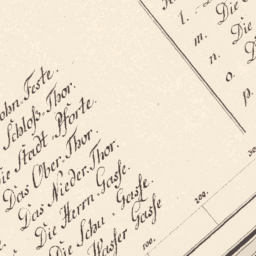 ohn. Feste.
Schloß. Thor.
Die Stadt Pforte.
Das Ober. Thor.
Das Nieder. Thor.
Die Herrn Gasse.
Die Schu. Gasse
Wasser Gasse
l.
m. Die
n. Die
o. D
p.
100. 200. 30